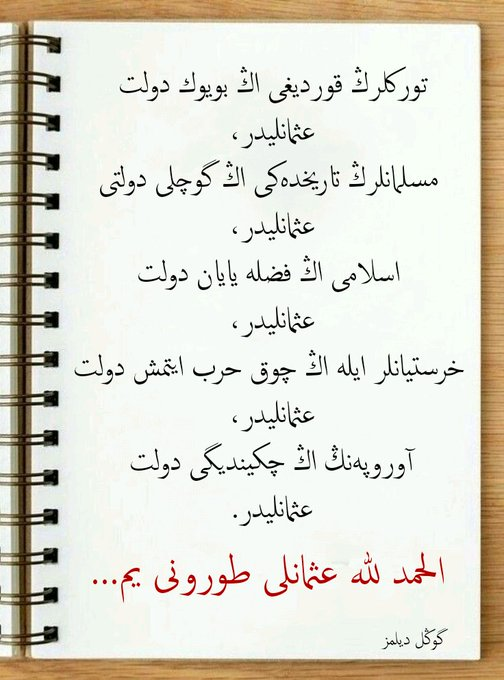 توركلرڭ قورديغى اڭ بويوك دولت
عثمانليدر،
مسلمانلرڭ تاريخده‌كى اڭ گوچلى دولتى
عثمانليدر،
اسلامى اڭ فضله يايان دولت
عثمانليدر،
خرستيانلر ايله اڭ چوق حرب ايتمش دولت
عثمانليدر،
آوروپه‌نڭ اڭ چكينديگى دولت
عثمانليدر.
الحمد لله عثمانلى طورونى يم...
گوڭل ديلمز